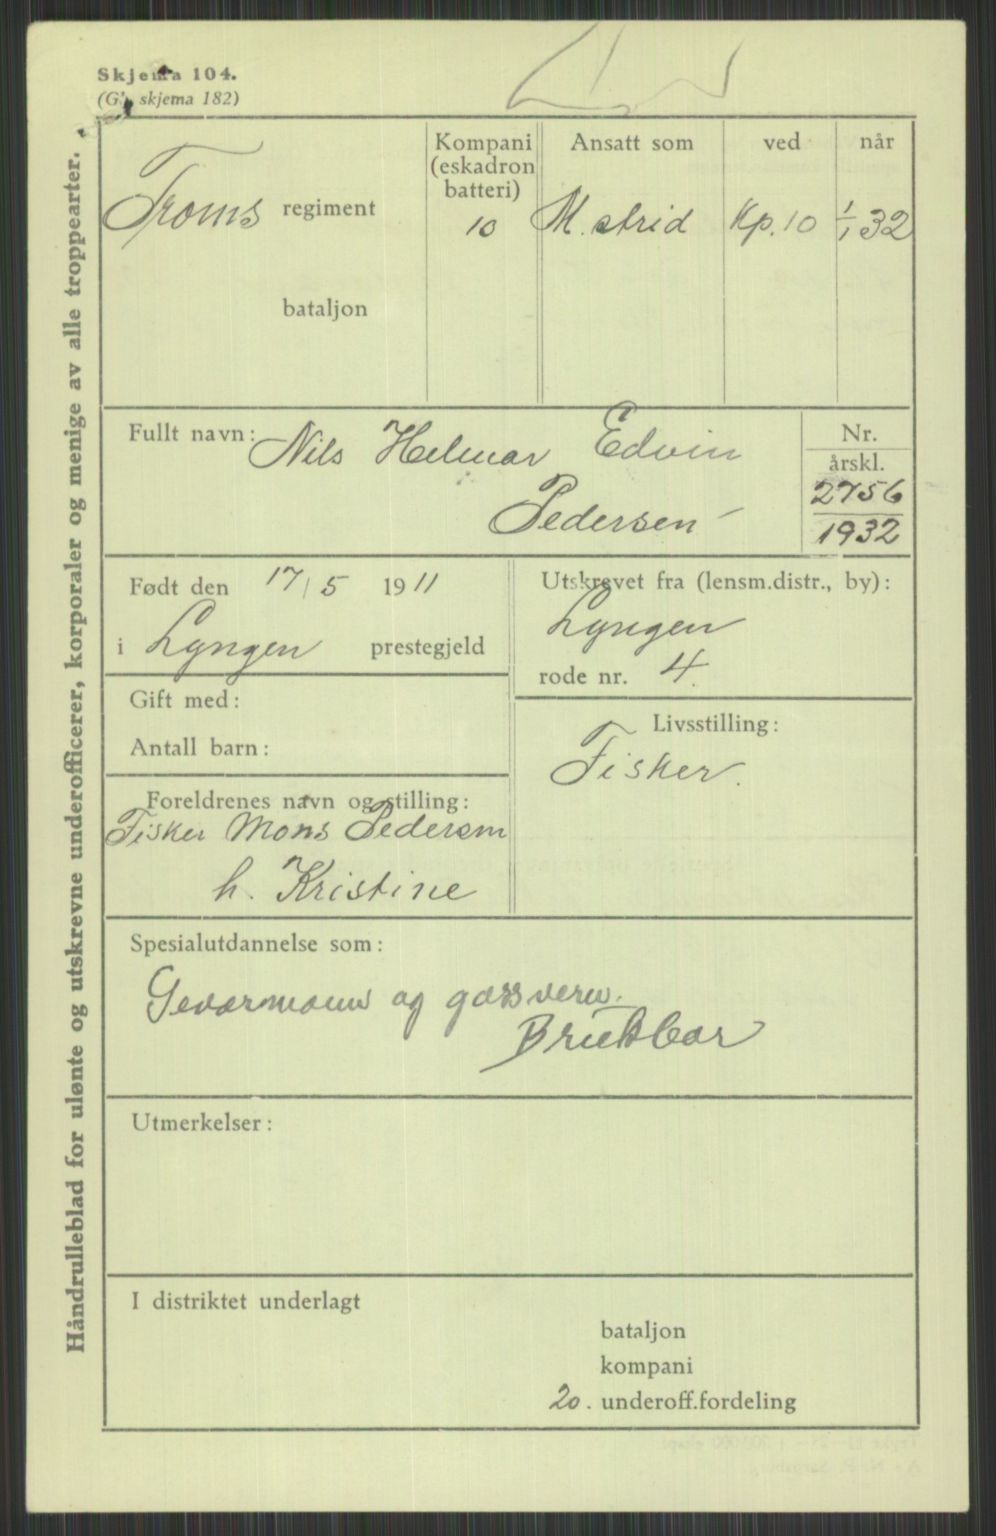 Skjema 104.
(G. skjema 182)
Håndrulleblad for ulønte og utskrevne underofficerer, korporaler og menige av alle troppearter.
Troms regiment
bataljon
Kompani
(eskadron
batteri)
10
Ansatt som
M. strid
ved
Kp. 10
når
1/1 32
Fullt navn: Nils Helmar Edvin
Pedersen
Nr.
årskl.
2756
1932
Født den 17/5 1911
i Lyngen prestegjeld
Utskrevet fra (lensm.distr., by):
Lyngen
rode nr. 4.
Gift med:
Antall barn:
Livsstilling:
Fisker.
Foreldrenes navn og stilling:
Fisker Mons Pedersen
h. Kristine
Spesialutdannelse som:
Geværmann og gassvern.
Brukbar
Utmerkelser:
I distriktet underlagt
bataljon
kompani
20. underoff.fordeling